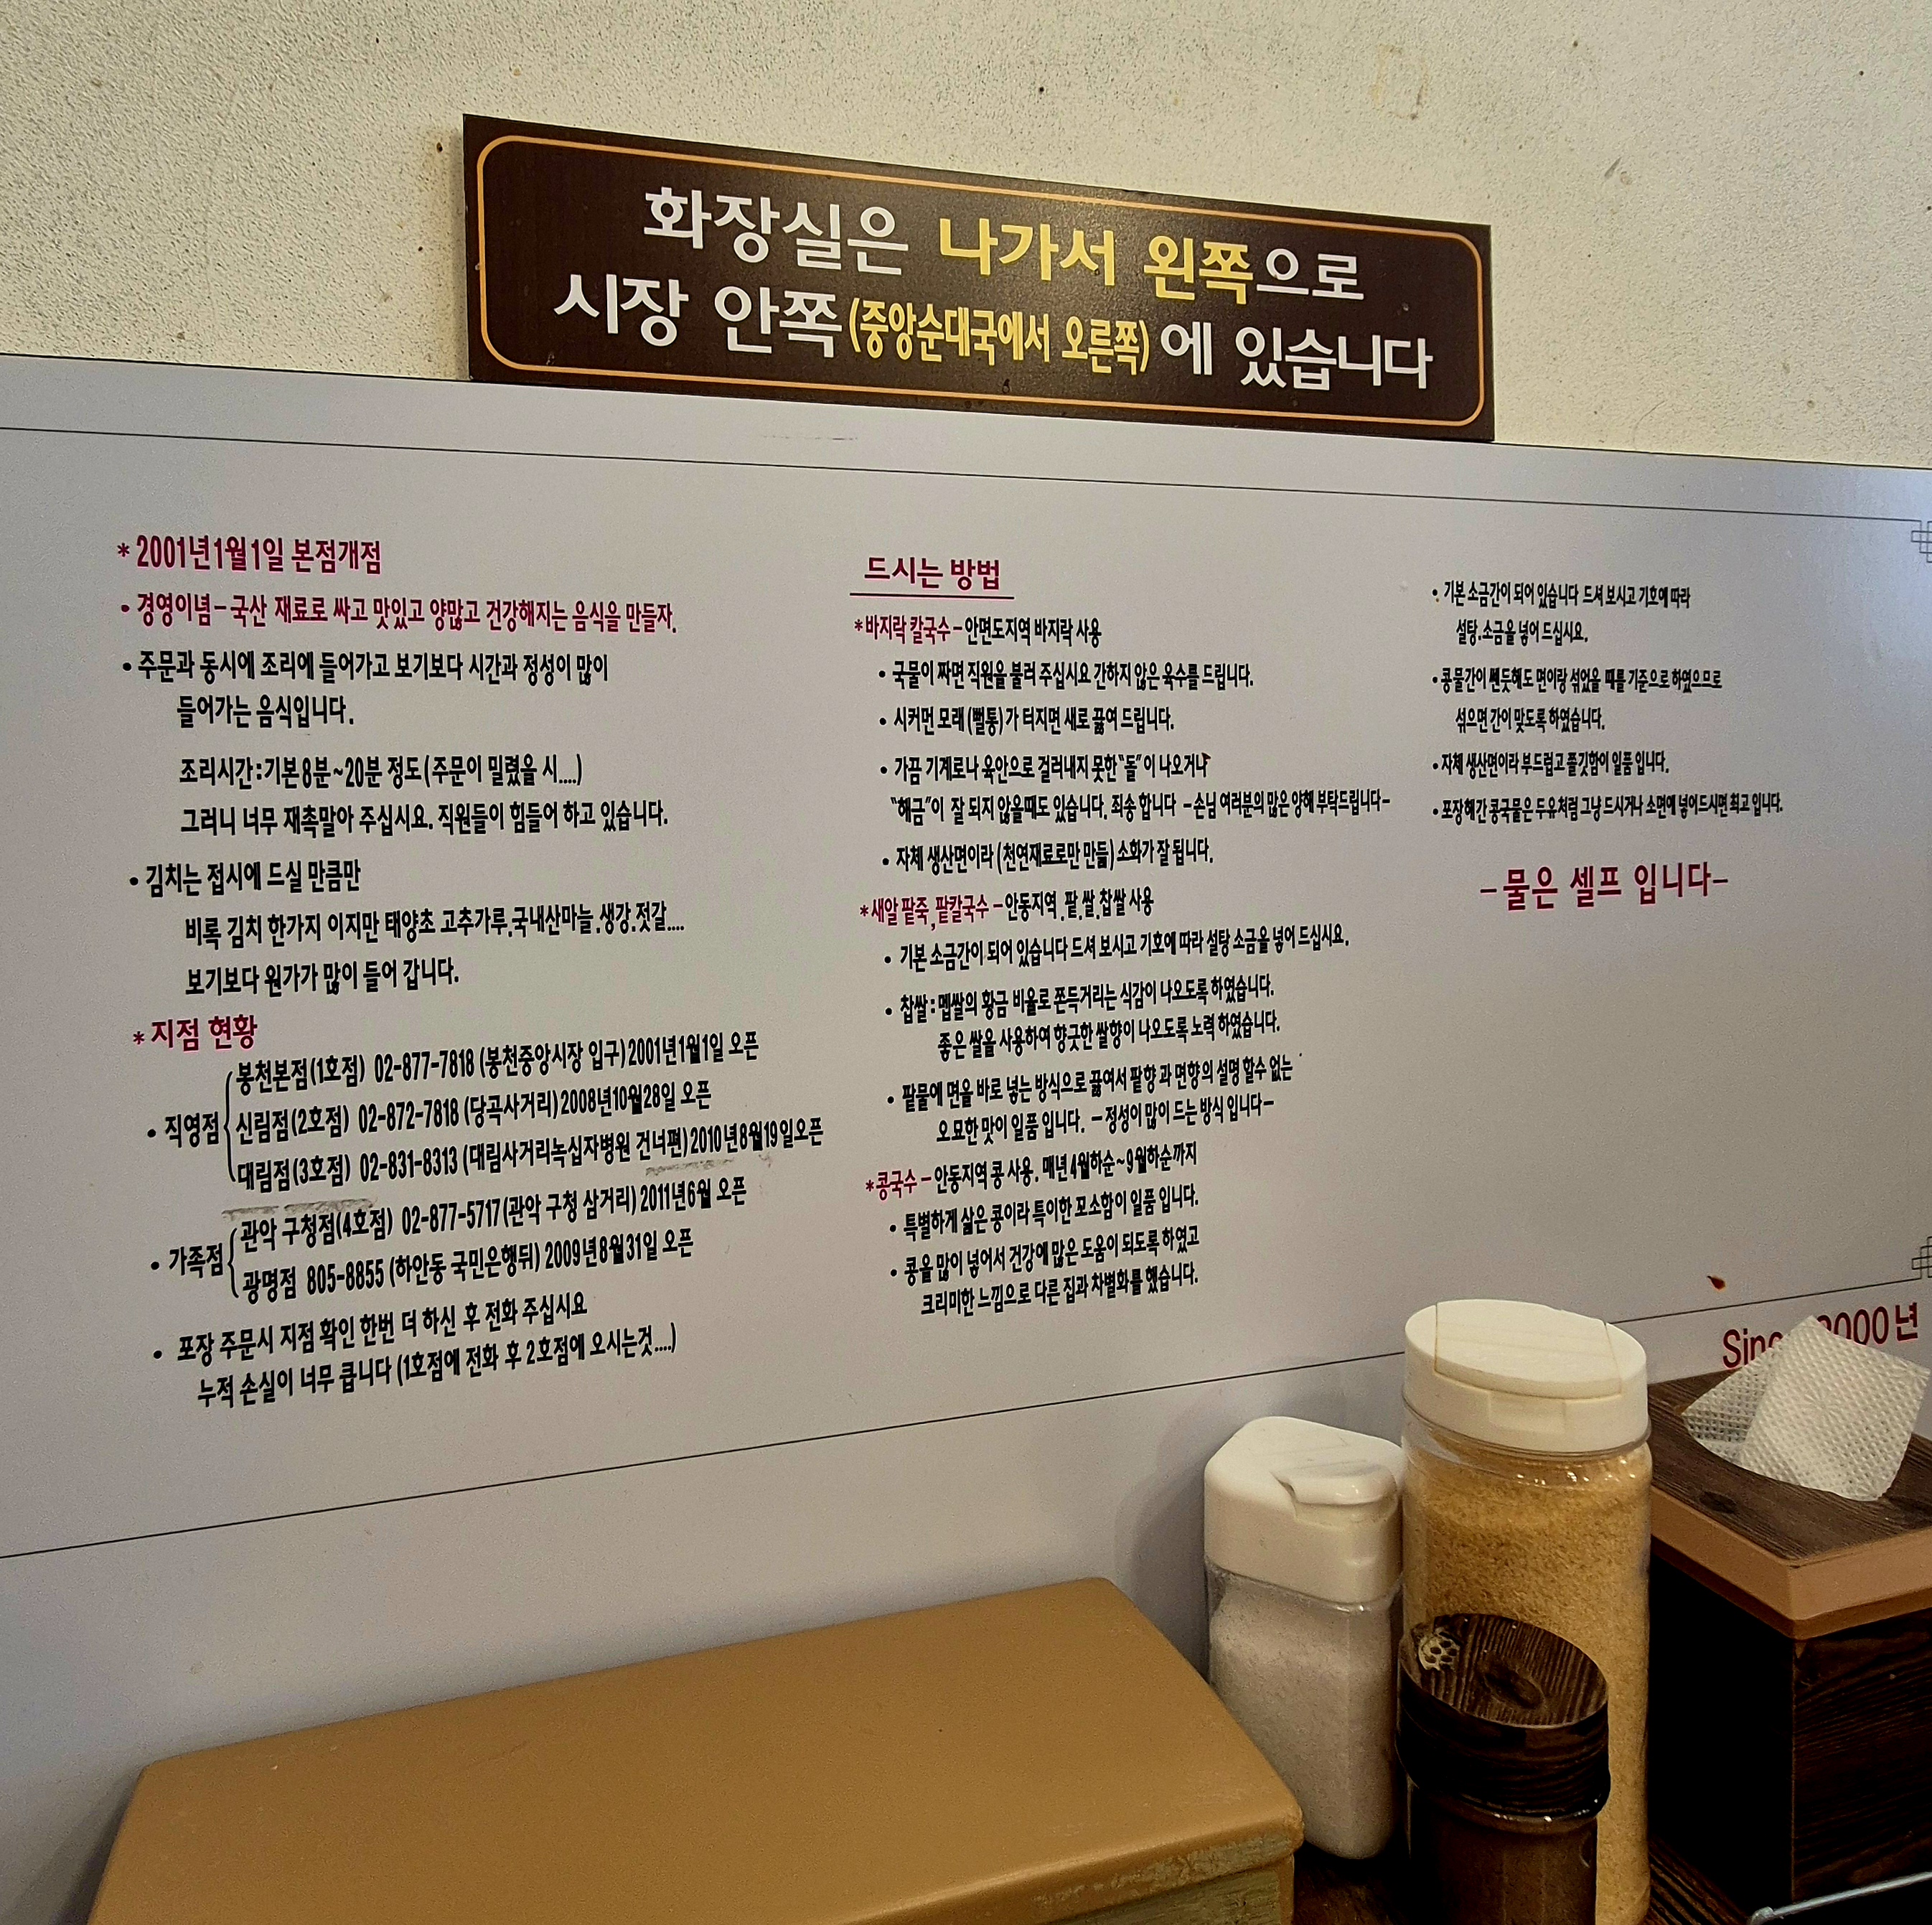 화장실은 나가서 왼쪽으로
시장 안쪽(중앙순대국에서 오른쪽)에 있습니다
*2001년1월1일 본점개점
• 경영이념-국산 재료로 싸고 맛있고 양많고 건강해지는 음식을 만들자.
• 주문과 동시에 조리에 들어가고 보기보다 시간과 정성이 많이
들어가는 음식입니다.
조리시간:기본8분~20분 정도(주문이 밀렸을 시....)
그러니 너무 재촉말아 주십시요. 직원들이 힘들어 하고 있습니다.
• 김치는 접시에 드실 만큼만
비록 김치 한가지 이지만 태양초 고추가루,국내산마늘.생강.젓갈....
보기보다 원가가 많이 들어 갑니다.
*지점 현황
• 직영점
봉천본점(1호점) 02-877-7818 (봉천중앙시장 입구)2001년1월1일 오픈
신림점(2호점) 02-872-7818 (당곡사거리)2008년10월28일 오픈
대림점(3호점) 02-831-8313 (대림사거리녹십자병원 건너편)2010년8월19일오픈
• 가족점
관악 구청점(4호점) 02-877-5717(관악 구청 삼거리) 2011년6월 오픈
광명점 805-8855 (하안동 국민은행뒤) 2009년8월31일 오픈
• 포장 주문시 지점 확인 한번 더 하신 후 전화 주십시요
누적 손실이 너무 큽니다 (1호점에 전화 후 2호점에 오시는것....)
드시는 방법
*바지락 칼국수-안면도지역 바지락 사용
• 국물이 짜면 직원을 불러 주십시요 간하지 않은 육수를 드립니다.
• 시커먼 모래(뻘통)가 터지면 새로 끓여 드립니다.
• 가끔 기계로나 육안으로 걸러내지 못한"돌"이 나오거나
"해금"이 잘 되지 않을때도 있습니다. 죄송 합니다 -손님 여러분의 많은 양해 부탁드립니다-
• 자체 생산면이라 (천연재료로만 만듦)소화가 잘 됩니다.
*새알 팥죽,팥칼국수-안동지역.팥.쌀.찹쌀 사용
• 기본 소금간이 되어 있습니다 드셔 보시고 기호에 따라 설탕 소금을 넣어 드십시요.
• 찹쌀:멥쌀의 황금 비율로 쫀득거리는 식감이 나오도록 하였습니다.
좋은 쌀을 사용하여 향긋한 쌀향이 나오도록 노력 하였습니다.
• 팥물에 면을 바로 넣는 방식으로 끓여서 팥향 과 면향의 설명 할수 없는
오묘한 맛이 일품 입니다. -정성이 많이 드는 방식 입니다-
*콩국수-안동지역 콩 사용. 매년 4월하순~9월하순까지
• 특별하게 삶은 콩이라 특이한 꼬소함이 일품 입니다.
• 콩을 많이 넣어서 건강에 많은 도움이 되도록 하였고
크리미한 느낌으로 다른 집과 차별화를 했습니다.
• 기본 소금간이 되어 있습니다 드셔 보시고 기호에 따라
설탕.소금을 넣어 드십시요.
• 콩물간이 쎈듯해도 면이랑 섞었을 때를 기준으로 하였으므로
섞으면 간이 맞도록 하였습니다.
• 자체 생산면이라 부드럽고 쫄깃함이 일품 입니다.
• 포장해간 콩국물은 두유처럼 그냥 드시거나 소면에 넣어드시면 최고 입니다.
-물은 셀프 입니다-